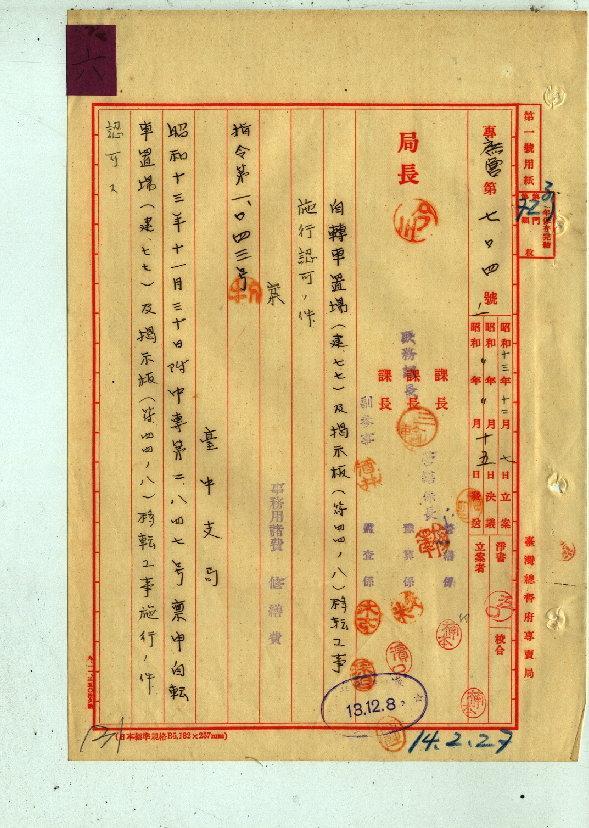 六
第一號用紙
專庶營第七〇四號
昭和十三年十二月七日立案
昭和〃年〃月 日決議
昭和〃年〃月十五日發送
淨書
校合
立案者
臺灣總督府專賣局
局長
課長
課長
課長
庶務課長
副參事
營繕係長
營繕係
豫算係
監查係
自轉車置場(建、七七)及揭示板(符四四ノ八)移転工事
施行認可ノ件
案
指令第一〇四三号
事務用諸費 修繕費
臺中支局
昭和十三年十一月三十日附中專第二八四七号稟申自転
車置場(建、七七)及揭示板(符四四ノ八)移転工事施行ノ件
認可ス
13.12.8
14.2.27
(日本標準規格B5,182×257mm)